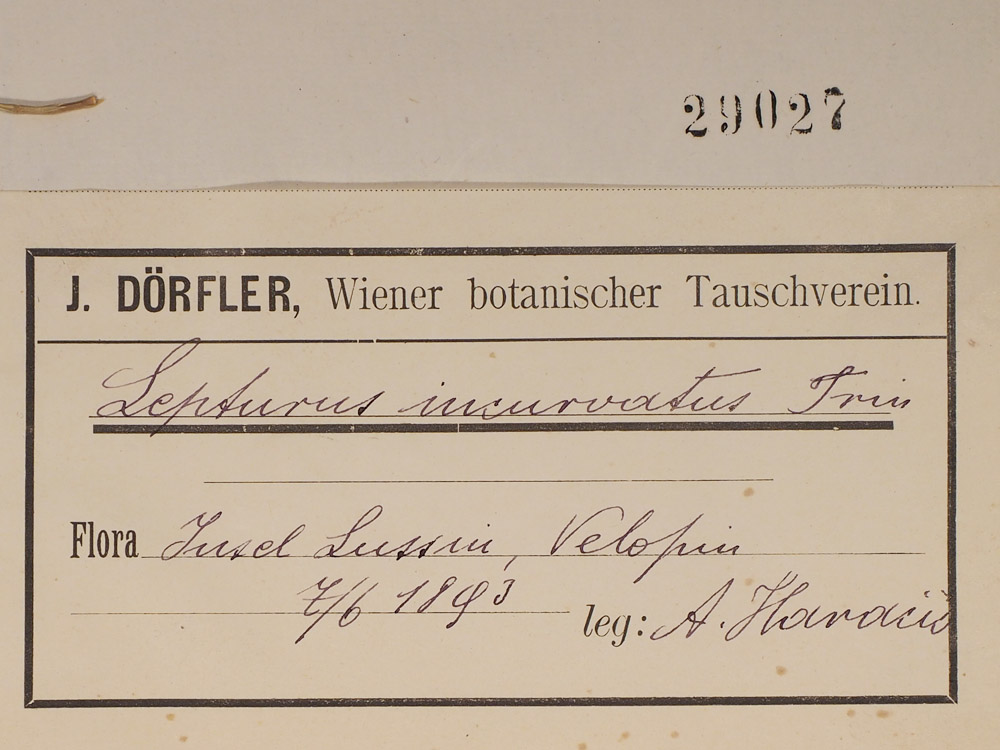 29027
J. DÖRFLER, Wiener botanischer Tauschverein.
Lepturus incurvatus Trin
Flora Insel Lussin, Velopin
7/6 1893
leg: A. Haračić